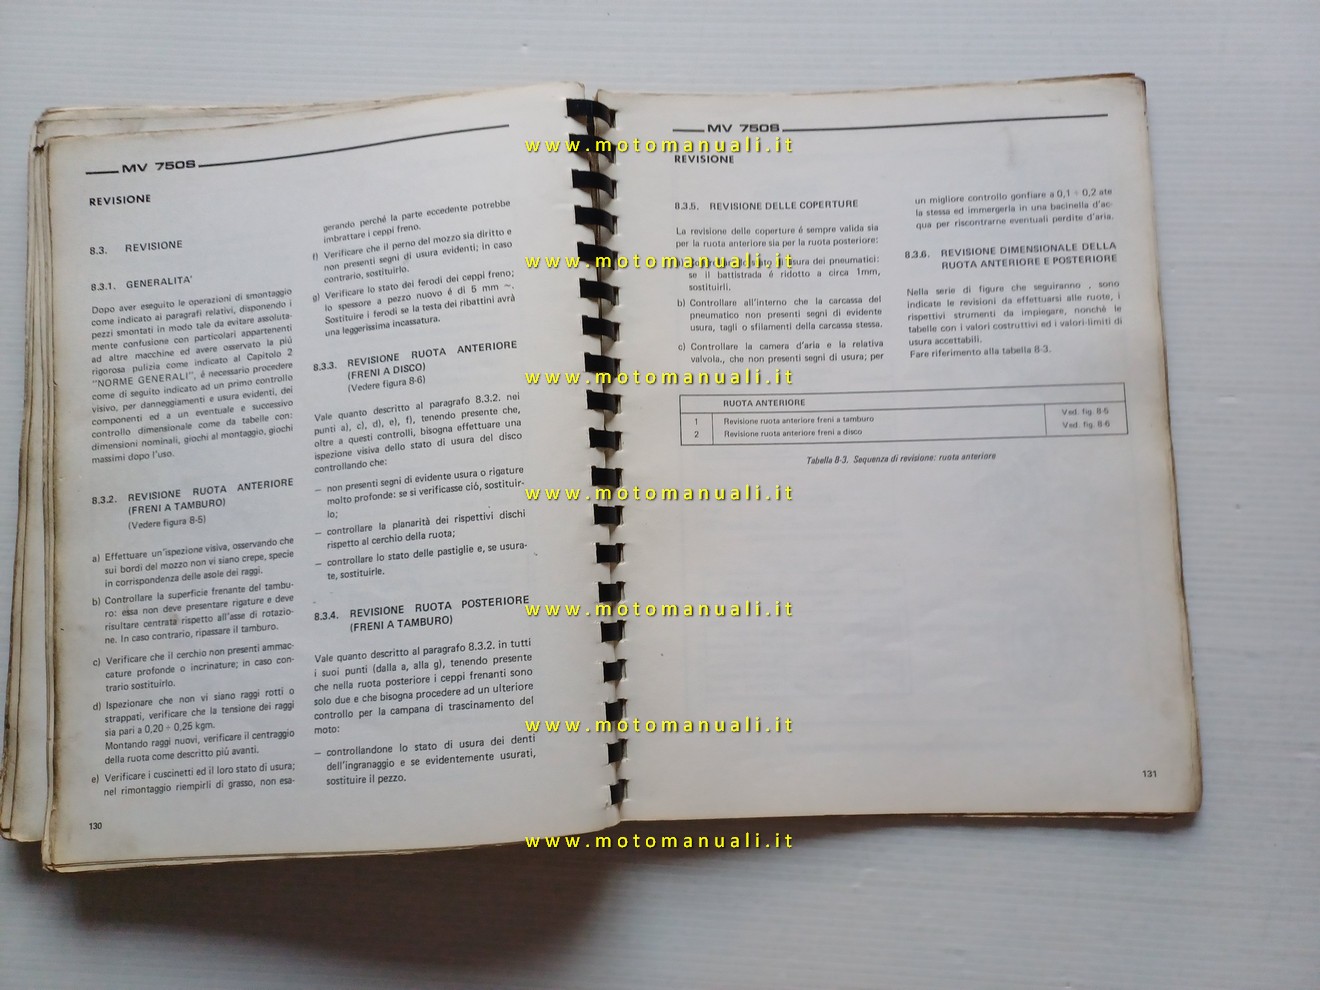 MV 750S
REVISIONE
8.3. REVISIONE
8.3.1. GENERALITA'
Dopo aver eseguito le operazioni di smontaggio
come indicato ai paragrafi relativi, disponendo i
pezzi smontati in modo tale da evitare assoluta-
mente confusione con particolari appartenenti
ad altre macchine ed avere osservato la più
rigorosa pulizia come indicato al Capitolo 2
"NORME GENERALI", é necessario procedere
come di seguito indicato ad un primo controllo
visivo, per danneggiamenti e usura evidenti, dei
componenti ed a un eventuale e successivo
controllo dimensionale come da tabelle con:
dimensioni nominali, giochi al montaggio, giochi
massimi dopo l'uso.
8.3.2. REVISIONE RUOTA ANTERIORE
(FRENI A TAMBURO)
(Vedere figura 8-5)
a) Effettuare un'ispezione visiva, osservando che
sui bordi del mozzo non vi siano crepe, specie
in corrispondenza delle asole dei raggi.
b) Controllare la superficie frenante del tambu-
ro: essa non deve presentare rigature e deve
risultare centrata rispetto all'asse di rotazio-
ne. In caso contrario, ripassare il tamburo.
c) Verificare che il cerchio non presenti ammac-
cature profonde o incrinature; in caso con-
trario sostituirlo.
d) Ispezionare che non vi siano raggi rotti o
strappati, verificare che la tensione dei raggi
sia pari a 0,20 ÷ 0,25 kgm.
Montando raggi nuovi, verificare il centraggio
della ruota come descritto più avanti.
e) Verificare i cuscinetti ed il loro stato di usura;
nel rimontaggio riempirli di grasso, non esa-
130
gerando perché la parte eccedente potrebbe
imbrattare i ceppi freno.
f) Verificare che il perno del mozzo sia diritto e
non presenti segni di usura evidenti; in caso
contrario, sostituirlo.
g) Verificare lo stato dei ferodi dei ceppi freno;
lo spessore a pezzo nuovo é di 5 mm ~.
Sostituire i ferodi se la testa dei ribattini avrà
una leggerissima incassatura.
8.3.3. REVISIONE RUOTA ANTERIORE
(FRENI A DISCO)
(Vedere figura 8-6)
Vale quanto descritto al paragrafo 8.3.2. nei
punti a), c), d), e), f), tenendo presente che,
oltre a questi controlli, bisogna effettuare una
ispezione visiva dello stato di usura del disco
controllando che:
— non presenti segni di evidente usura o rigature
molto profonde: se si verificasse ció, sostituir-
lo;
— controllare la planarità dei rispettivi dischi
rispetto al cerchio della ruota;
— controllare lo stato delle pastiglie e, se usura-
te, sostituirle.
8.3.4. REVISIONE RUOTA POSTERIORE
(FRENI A TAMBURO)
Vale quanto descritto al paragrafo 8.3.2. in tutti
i suoi punti (dalla a, alla g), tenendo presente
che nella ruota posteriore i ceppi frenanti sono
solo due e che bisogna procedere ad un ulteriore
controllo per la campana di trascinamento del
moto:
— controllandone lo stato di usura dei denti
dell'ingranaggio e se evidentemente usurati,
sostituire il pezzo.
MV 750S
REVISIONE
8.3.5. REVISIONE DELLE COPERTURE
La revisione delle coperture é sempre valida sia
per la ruota anteriore sia per la ruota posteriore:
usura dei pneumatici:
se il battistrada é ridotto a circa 1mm,
sostituirli.
b) Controllare all'interno che la carcassa del
pneumatico non presenti segni di evidente
usura, tagli o sfilamenti della carcassa stessa.
c) Controllare la camera d'aria e la relativa
valvola., che non presenti segni di usura; per
un migliore controllo gonfiare a 0,1 ÷ 0,2 ate
la stessa ed immergerla in una bacinella d'ac-
qua per riscontrarne eventuali perdite d'aria.
8.3.6. REVISIONE DIMENSIONALE DELLA
RUOTA ANTERIORE E POSTERIORE
Nella serie di figure che seguiranno , sono
indicate le revisioni da effettuarsi alle ruote, i
rispettivi strumenti da impiegare, nonchè le
tabelle con i valori costruttivi ed i valori-limiti di
usura accettabili.
Fare riferimento alla tabella 8-3.
RUOTA ANTERIORE
1 Revisione ruota anteriore freni a tamburo Ved. fig. 8-5
2 Revisione ruota anteriore freni a disco Ved. fig. 8-6
Tabella 8-3. Sequenza di revisione: ruota anteriore
131
www.motomanuali.it
www.motomanuali.it
www.motomanuali.it
www.motomanuali.it
www.motomanuali.it
www.motomanuali.it
www.motomanuali.it